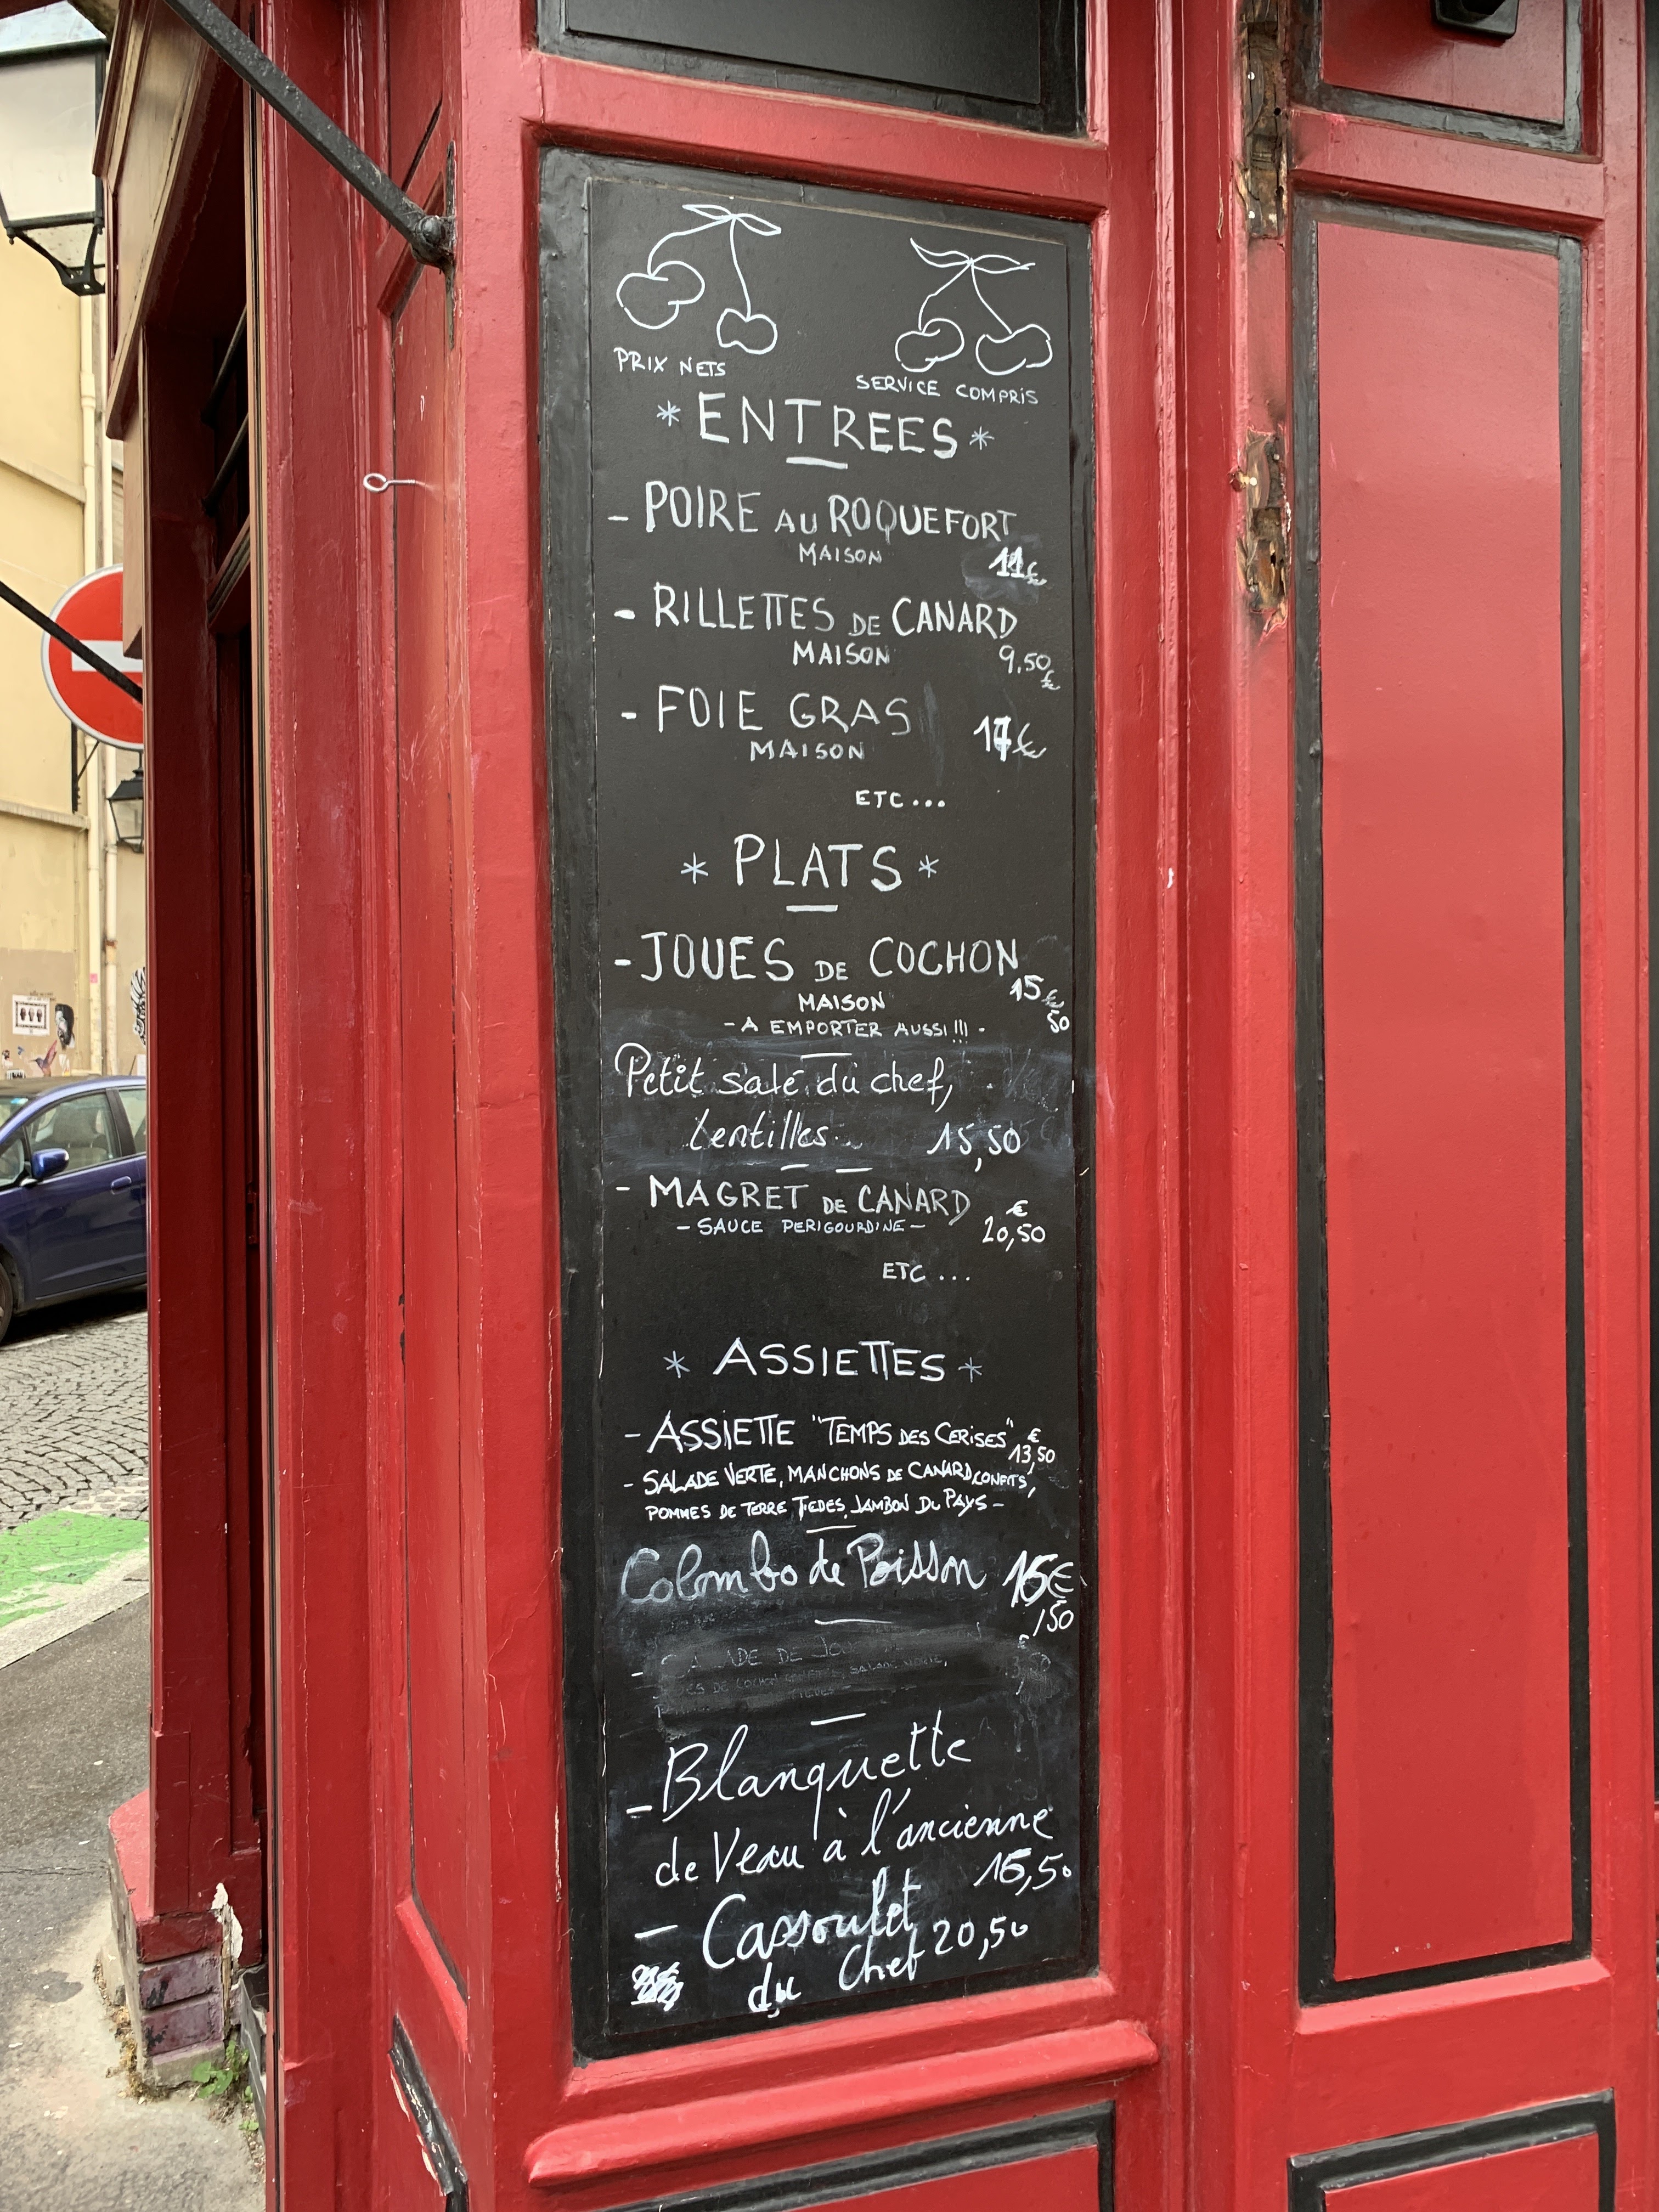 PRIX NETS
SERVICE COMPRIS
* ENTREES *
- POIRE AU ROQUEFORT
MAISON
11€
- RILLETTES DE CANARD
MAISON 9.50 €
- FOIE GRAS
MAISON
17€
ETC...
* PLATS *
- JOUES DE COCHON
MAISON
15€50
- A EMPORTER AUSSI!!! -
Petit salé du chef,
lentilles... 15,50
- MAGRET DE CANARD
- SAUCE PERIGOURDINE -
€
20,50
ETC ...
* ASSIETTES *
- ASSIETTE "TEMPS DES CERISES" €
13,50
- SALADE VERTE, MANCHONS DE CANARD CONFITS,
POMMES DE TERRE TIEDES, JAMBON DU PAYS -
Colombo de Poisson 16€
,50
DE
DE COCHON
SALADE VERTE,
- Blanquette
de Veau à l'ancienne
16,50
- Cassoulet
du Chef 20,50